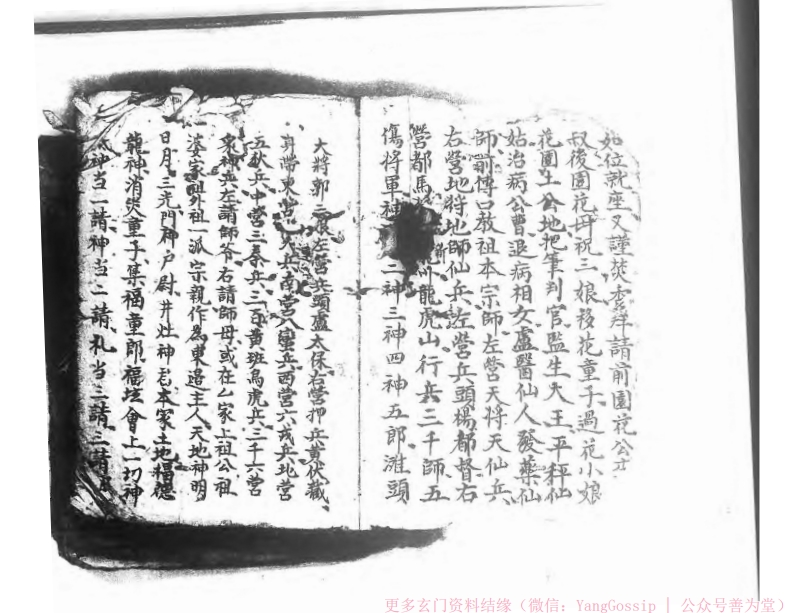 如位就座又謹焚香拜請前園花公
叔後園花母祝三娘移花童子過花小娘
花園土公地把筆判官監生大王平秤仙
姑治病公曹退病相女盧醫仙人發藥仙
師前傳口教祖本宗師左營天將天仙兵
右營地將地師仙兵左營兵頭楊都督右
營都馬龍虎山行兵三千師五
傷將軍神二神三神四神五郎滩頭
大將郭二娘左營兵頭盧太保右營押兵黃伏藏
身帶東营九夷兵南營八蠻兵西營六戎兵北營
五狄兵中營三秦兵三百黃班烏虎兵三千六營
眾神兵左請師爷右請師母或在厶家上祖公祖
婆家外祖一派宗親作為東道主人天地神明
日月三光門神戶尉井灶神君本家土地福德
龍神消災童子集福童郎福壇會上一切神
神当一請神当二請礼当三請三請
更多玄门资料结缘（微信：YangGossip | 公众号善为堂）